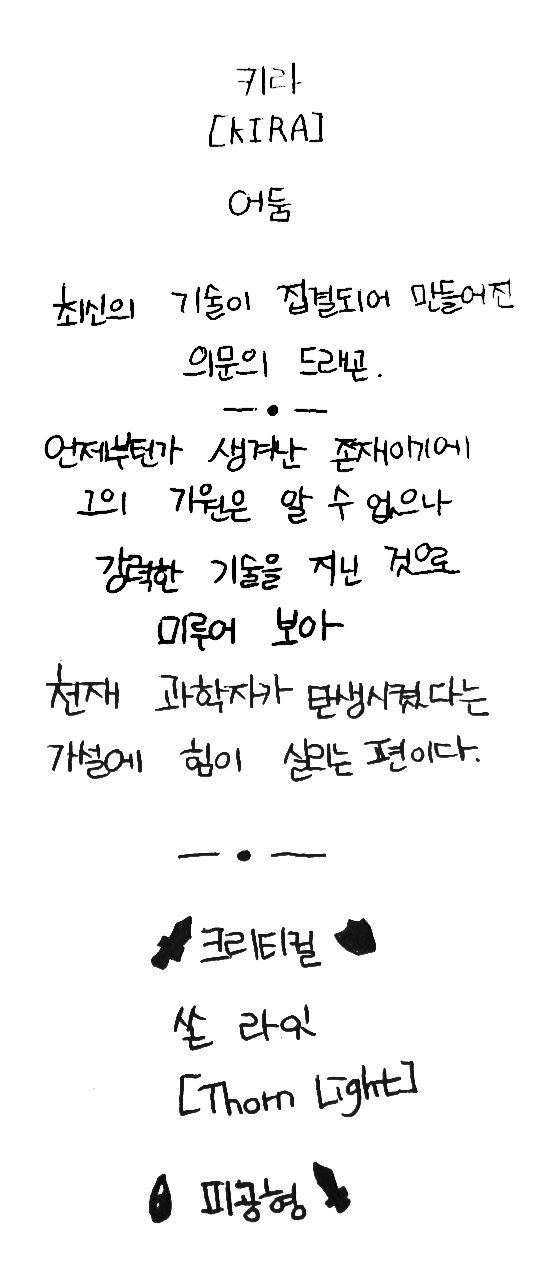 키라
[KIRA]
어둠
최신의 기술이 집결되어 만들어진
의문의 드래곤.
언제부턴가 생겨난 존재이기에
그의 기원은 알 수 없으나
강력한 기술을 지닌 것으로
미루어 보아
천재 과학자가 탄생시켰다는
가설에 힘이 실리는 편이다.
크리티컬
쏜 라잇
[Thorn Light]
피공형